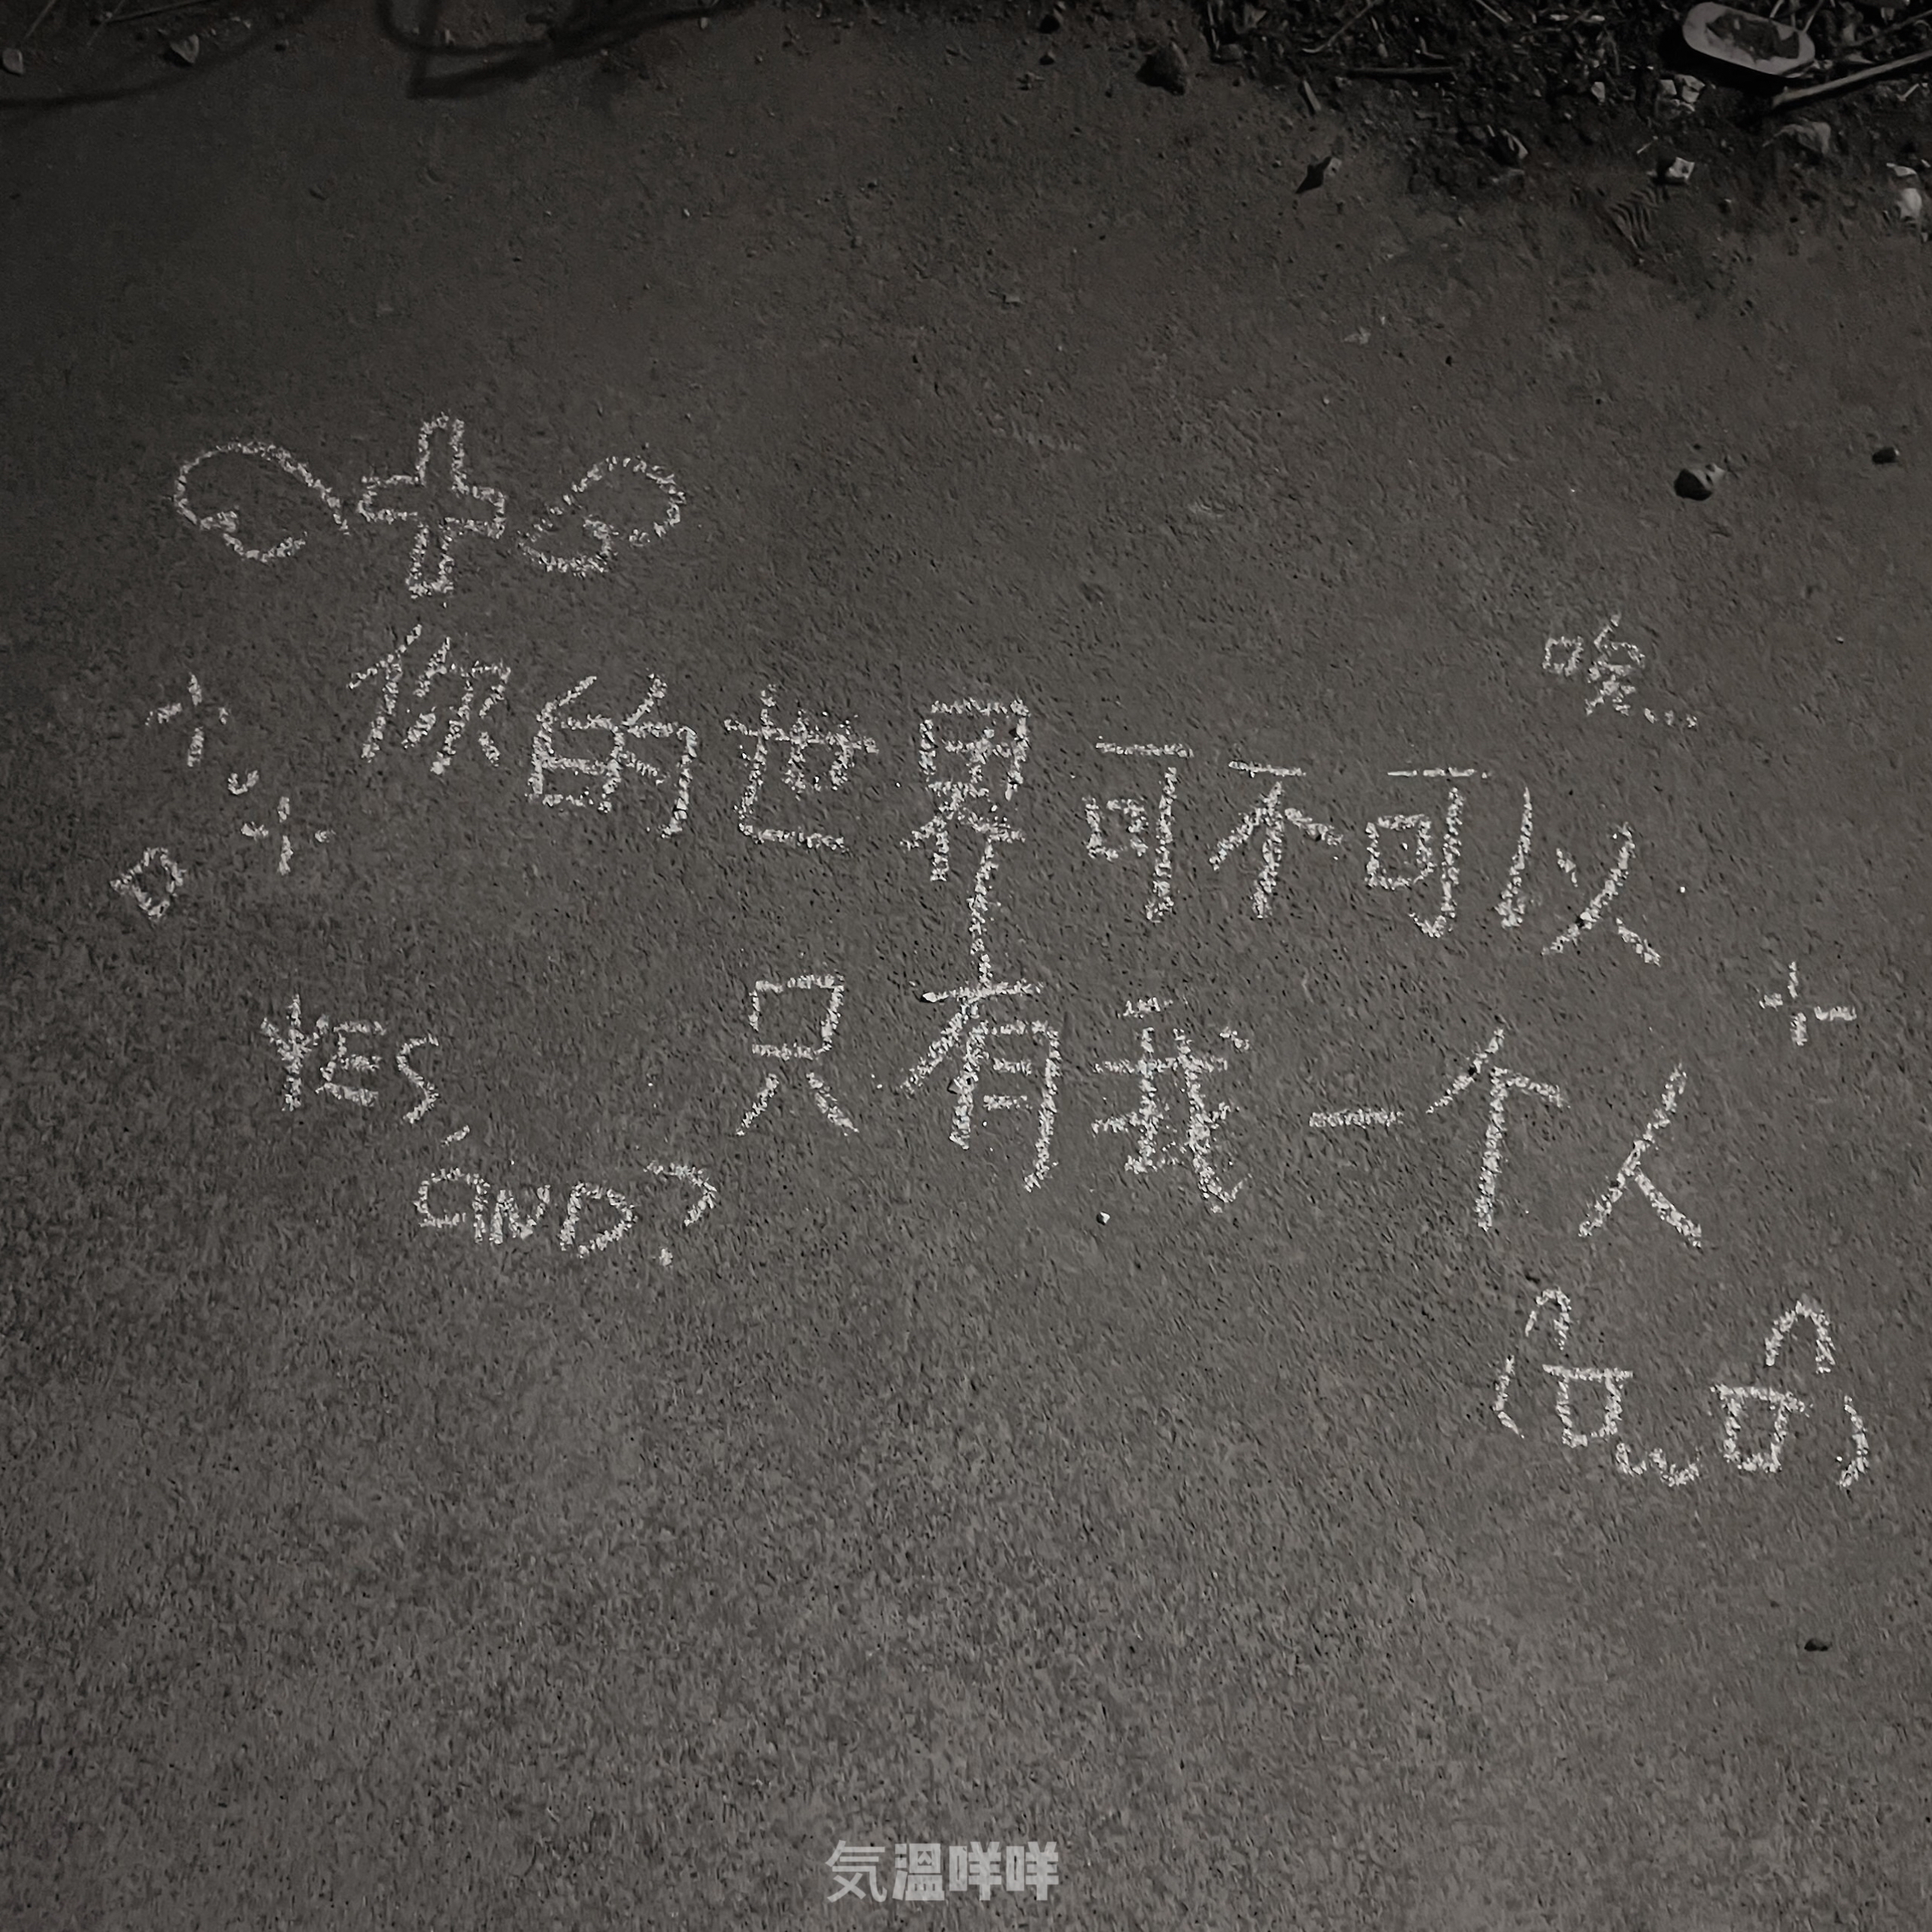 唉...
你的世界可不可以
只有我一个人
YES,
AND?
気溫咩咩